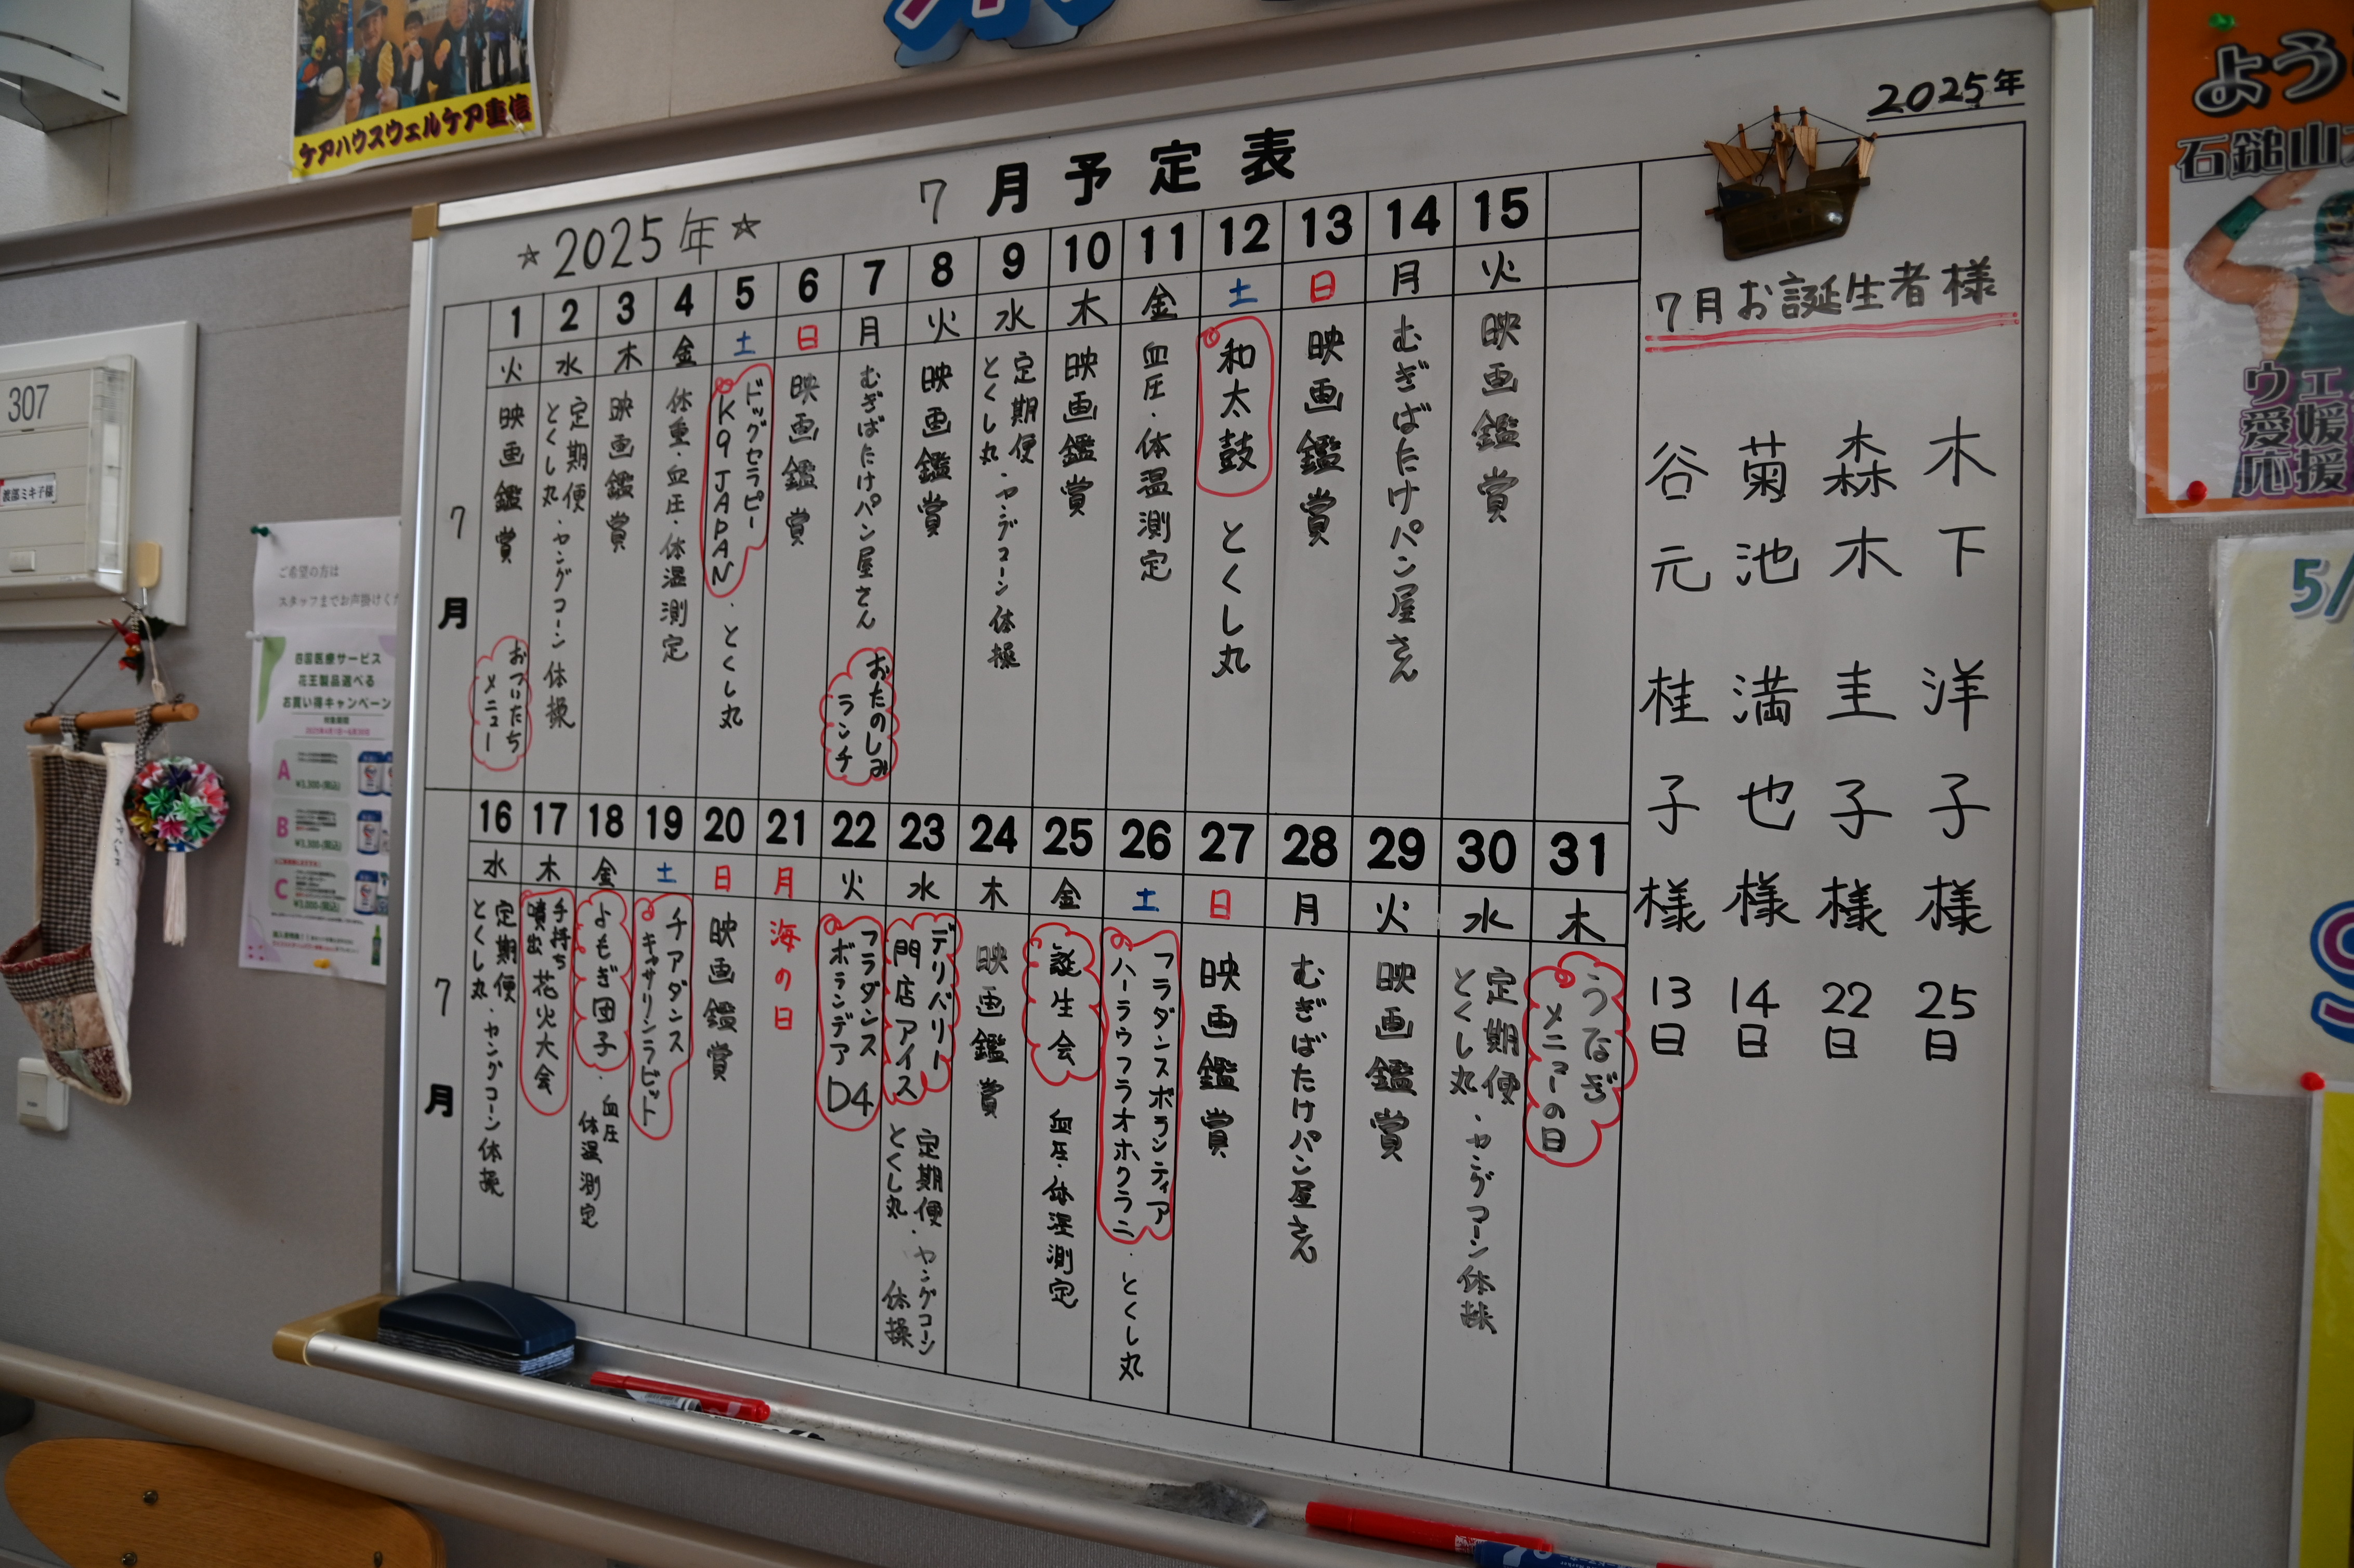 ケアハウスウェルケア重信
2025年
7月予定表
☆2025年☆
7月
1 火 映画鑑賞 おついたちメニュー
2 水 定期便とくし丸・ヤングコーン体操
3 木 映画鑑賞
4 金 体重・血圧・体温測定
5 土 ドッグセラピーK9JAPAN・とくし丸
6 日 映画鑑賞
7 月 むぎばたけパン屋さん おたのしみランチ
8 火 映画鑑賞
9 水 定期便とくし丸・ヤングコーン体操
10 木 映画鑑賞
11 金 血圧・体温測定
12 土 和太鼓 とくし丸
13 日 映画鑑賞
14 月 むぎばたけパン屋さん
15 火 映画鑑賞
7月
16 水 定期便とくし丸・ヤングコーン体操
17 木 手持ち噴出花火大会
18 金 よもぎ団子・血圧体温測定
19 土 チアダンスキャサリンラビット
20 日 映画鑑賞
21 月 海の日
22 火 フラダンスボランデアD4
23 水 デリバリー門店アイス 定期便とくし丸・ヤングコーン体操
24 木 映画鑑賞
25 金 誕生会 血圧・体温測定
26 土 フラダンスボランティアハーラウフラオホクラニ・とくし丸
27 日 映画鑑賞
28 月 むぎばたけパン屋さん
29 火 映画鑑賞
30 水 定期便とくし丸・ヤングコーン体操
31 木 うなぎメニューの日
7月お誕生者様
木下洋子様 25日
森木圭子様 22日
菊池満也様 14日
谷元桂子様 13日
307
渡部ミキ子様
ご希望の方は
スタッフまでお声掛けくだ
四国医療サービス
花王製品選べる
お買い得キャンペーン
A
¥3,300
B
¥3,300
C
¥3,000
よう
石鎚山
ウェ
愛媛
応援
5/
9